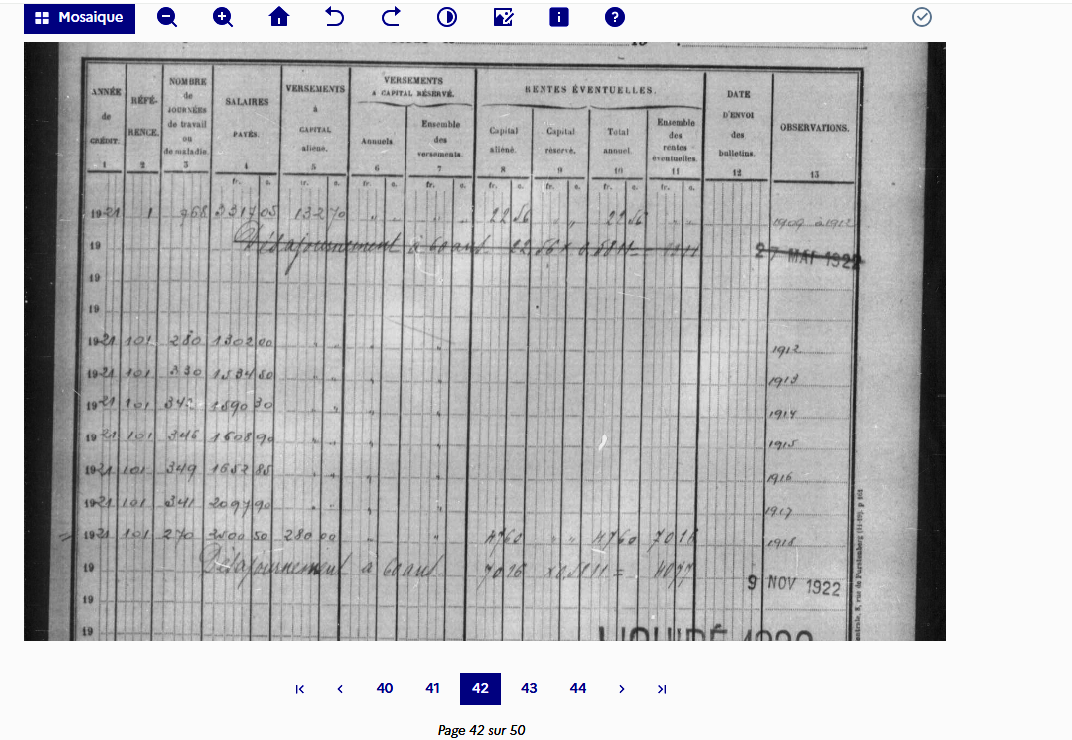 Mosaique
ANNÉE de CRÉDIT. 1
RÉFÉ-RENCE. 2
NOMBRE de JOURNÉES de travail ou de maladie. 3
SALAIRES PAYÉS. 4
VERSEMENTS à CAPITAL aliéné. 5
VERSEMENTS A CAPITAL RÉSERVÉ.
Annuels 6
Ensemble des versements. 7
RENTES ÉVENTUELLES.
Capital aliéné. 8
Capital réservé. 9
Total annuel. 10
Ensemble des rentes éventuelles. 11
DATE D'ENVOI des bulletins. 12
OBSERVATIONS. 13
fr. c. fr. c. fr. c. fr. c. fr. c. fr. c.
1921 1 968 3317 05 132 70 " " " " 22 56 " " 22 56 " " 1909 à 1912
19 à 60 ans 22 56 × 27 MAI 1922
19
19
1921 101 280 1302 00 " " " " 1912
1921 101 330 " " " 1913
1921 101 1590 30 " " " 1914
1921 101 346 1608 90 " " " 1915
1921 101 349 1652 85 " " " 1916
1921 101 341 2097 90 " " " 1917
1921 101 270 3500 50 280 00 " " 4760 " " 4760 7016 1918
19 à 60 ans 7016 = 4077 9 NOV 1922
19
19 LIQUIDÉ
8, rue de Furstenberg (11-19). p 101
40 41 42 43 44
Page 42 sur 50